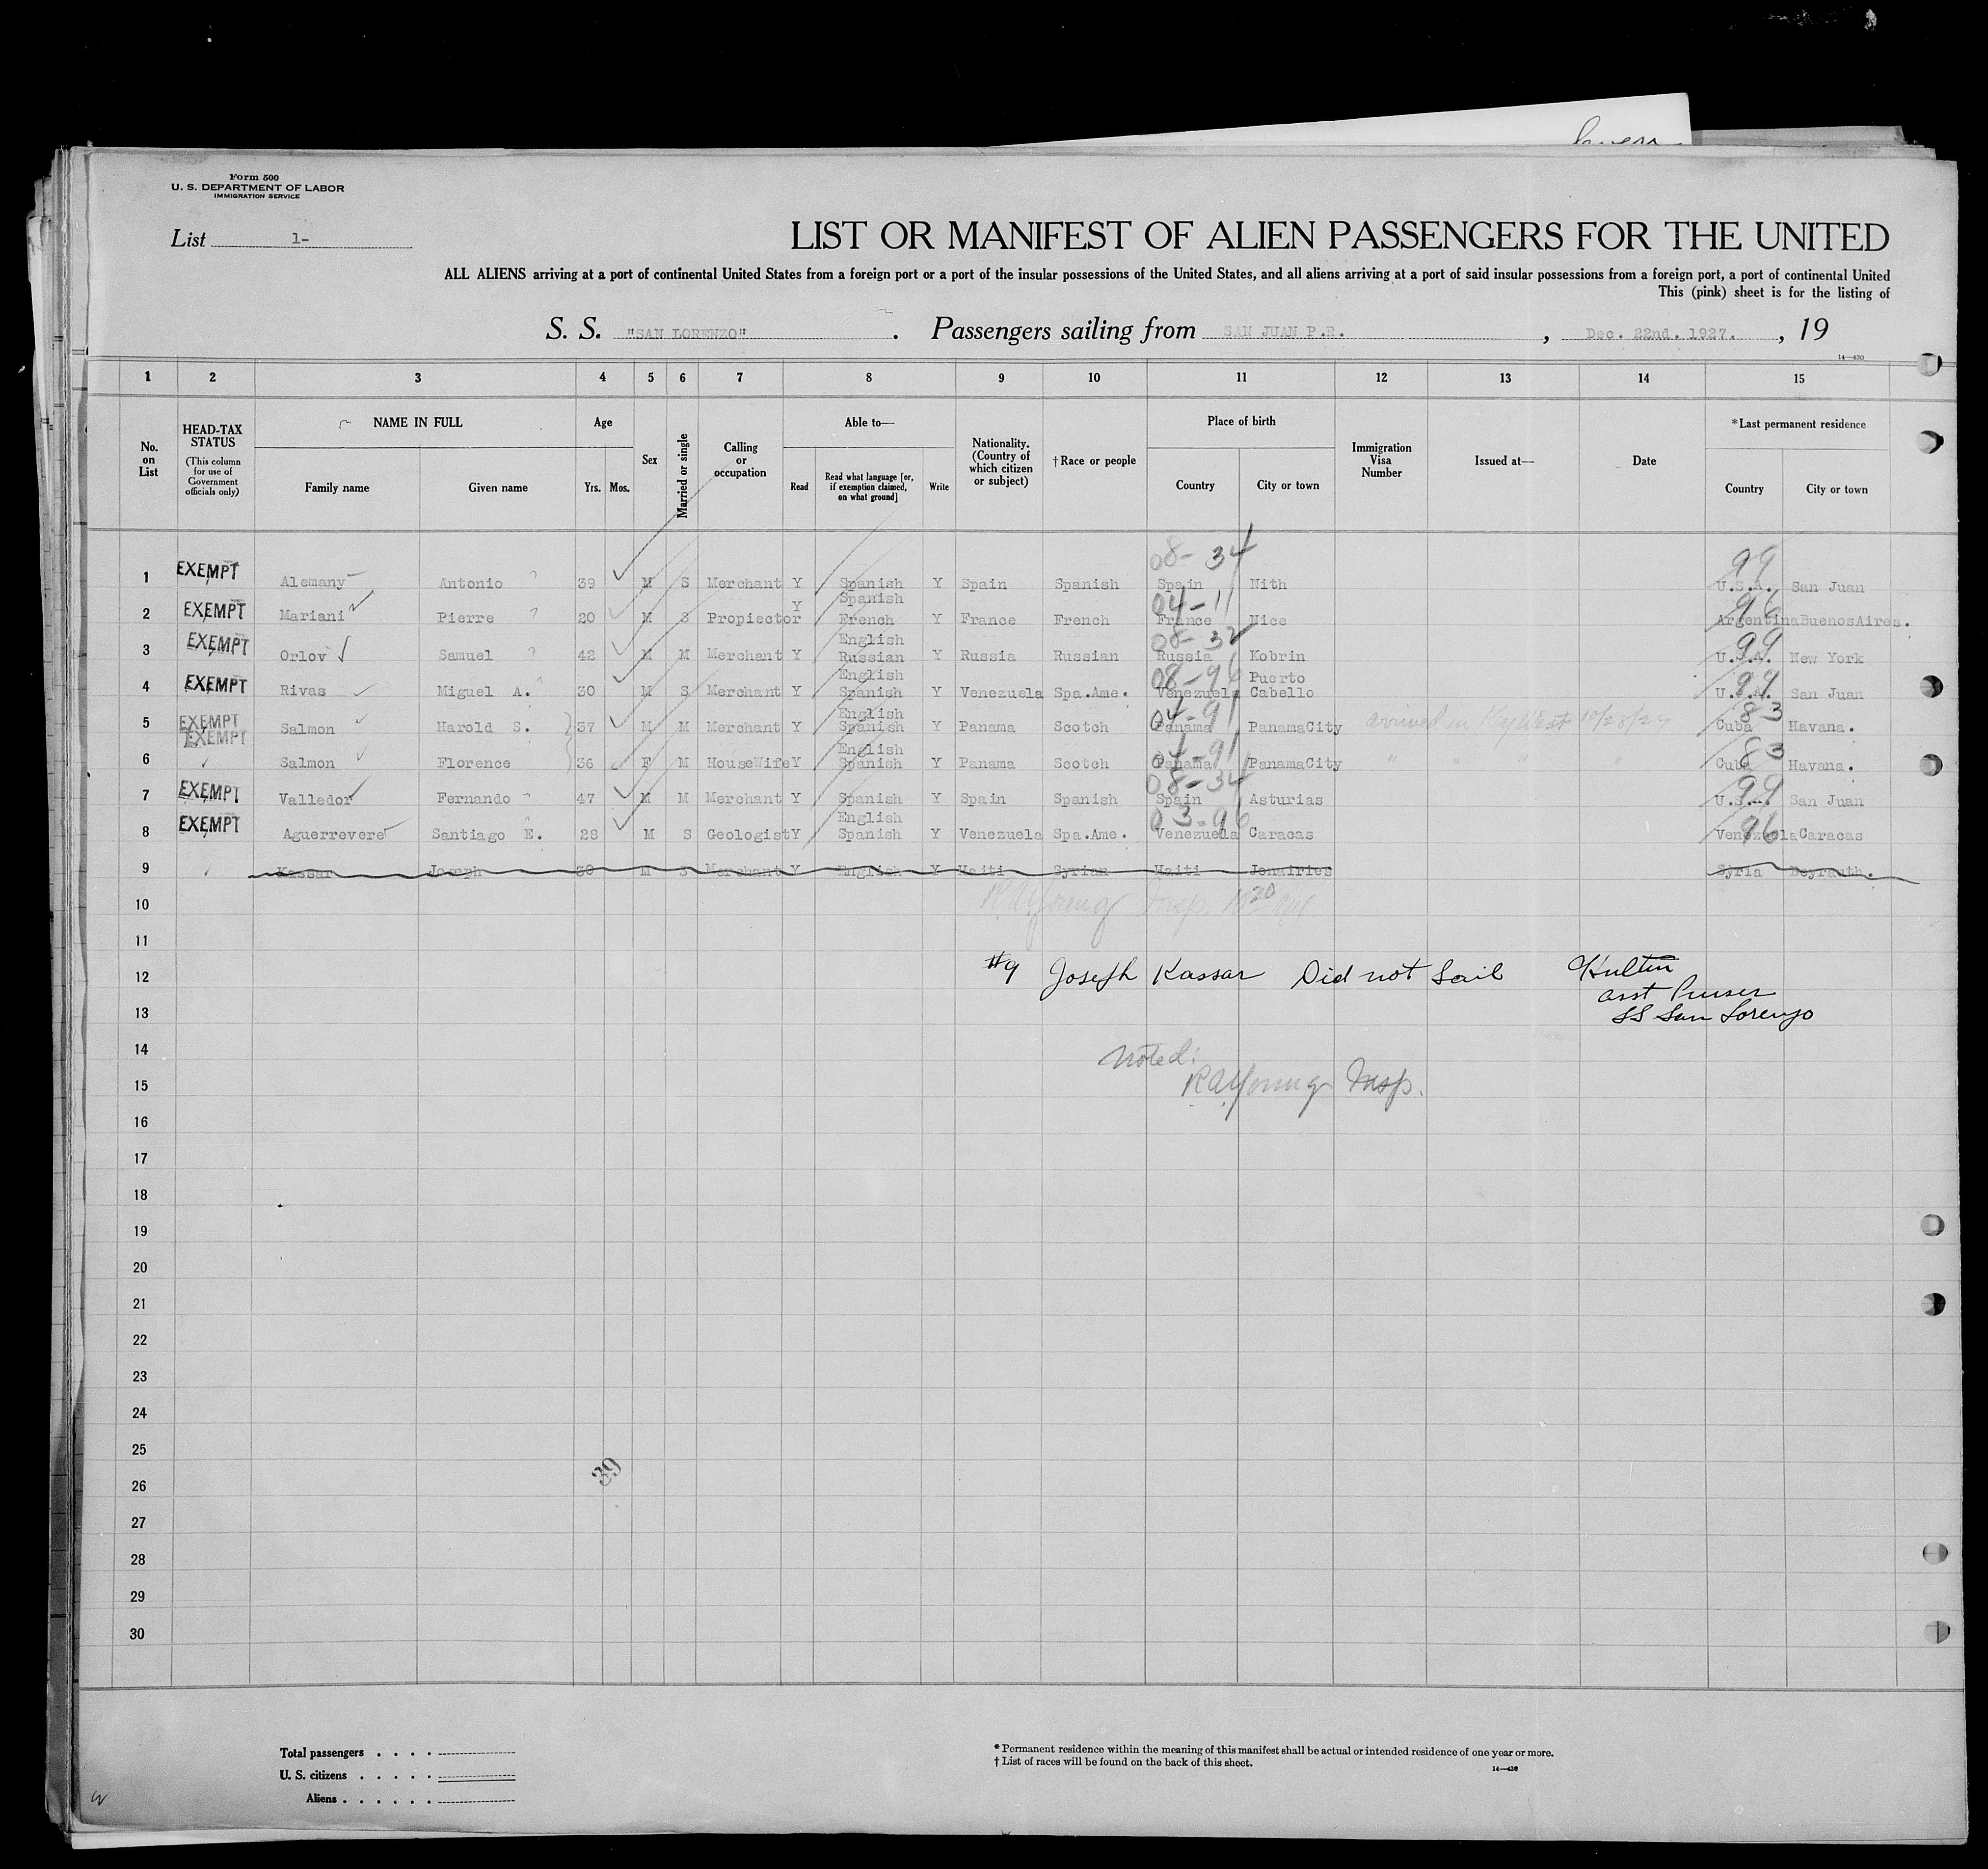 Form 500
U. S. DEPARTMENT OF LABOR
IMMIGRATION SERVICE
List 1-
LIST OR MANIFEST OF ALIEN PASSENGERS FOR THE UNITED
ALL ALIENS arriving at a port of continental United States from a foreign port or a port of the insular possessions of the United States, and all aliens arriving at a port of said insular possessions from a foreign port, a port of continental United
This (pink) sheet is for the listing of
S. S. "SAN LORENZO" . Passengers sailing from SAN JUAN P.R. , Dec. 22nd. 1927. , 19
14—430
1 2 3 4 5 6 7 8 9 10 11 12 13 14 15
No. on List
HEAD-TAX STATUS
(This column for use of Government officials only)
NAME IN FULL
Family name Given name
Age
Yrs. Mos.
Sex
Married or single
Calling or occupation
Able to—
Read
Read what language [or, if exemption claimed, on what ground]
Write
Nationality. (Country of which citizen or subject)
†Race or people
Place of birth
Country City or town
Immigration Visa Number
Issued at—
Date
*Last permanent residence
Country City or town
08-34 99
1 EXEMPT Alemany Antonio 39 M S Merchant Y Spanish Y Spain Spanish Spain Nith U.S.A. San Juan
04-11 96
2 EXEMPT Mariani Pierre 20 M S Propiector Y Spanish French Y France French France Nice Argentina BuenosAires.
08-32 99
3 EXEMPT Orlov Samuel 42 M M Merchant Y English Russian Y Russia Russian Russia Kobrin U.S.A. New York
08-96 99
4 EXEMPT Rivas Miguel A. 30 M S Merchant Y English Spanish Y Venezuela Spa.Ame. Venezuela Puerto Cabello U.S.A. San Juan
04-91 83
5 EXEMPT Salmon Harold S. 37 M M Merchant Y English Spanish Y Panama Scotch Panama PanamaCity arrived in Key West Cuba Havana.
4-91 83
6 EXEMPT Salmon Florence 36 F M HouseWife Y English Spanish Y Panama Scotch Panama PanamaCity " " " " Cuba Havana.
08-34 99
7 EXEMPT Valledor Fernando 47 M M Merchant Y Spanish Y Spain Spanish Spain Asturias U.S.A. San Juan
03-96 96
8 EXEMPT Aguerrevere Santiago E. 28 M S Geologist Y English Spanish Y Venezuela Spa.Ame. Venezuela Caracas Venezuela Caracas
9 Kassar Joseph 30 M S Merchant Y English Y Haiti Syrian Haiti Syria Beyrauth.
10 R A Young Insp.
11
12 #9 Joseph Kassar Did not Sail
asst Purser
13 SS San Lorenzo
14 Noted:
15 R A Young Insp.
16
17
18
19
20
21
22
23
24
25
39
26
27
28
29
30
Total passengers . . . .
U. S. citizens . . . . .
Aliens . . . . . .
* Permanent residence within the meaning of this manifest shall be actual or intended residence of one year or more.
† List of races will be found on the back of this sheet.
14—430